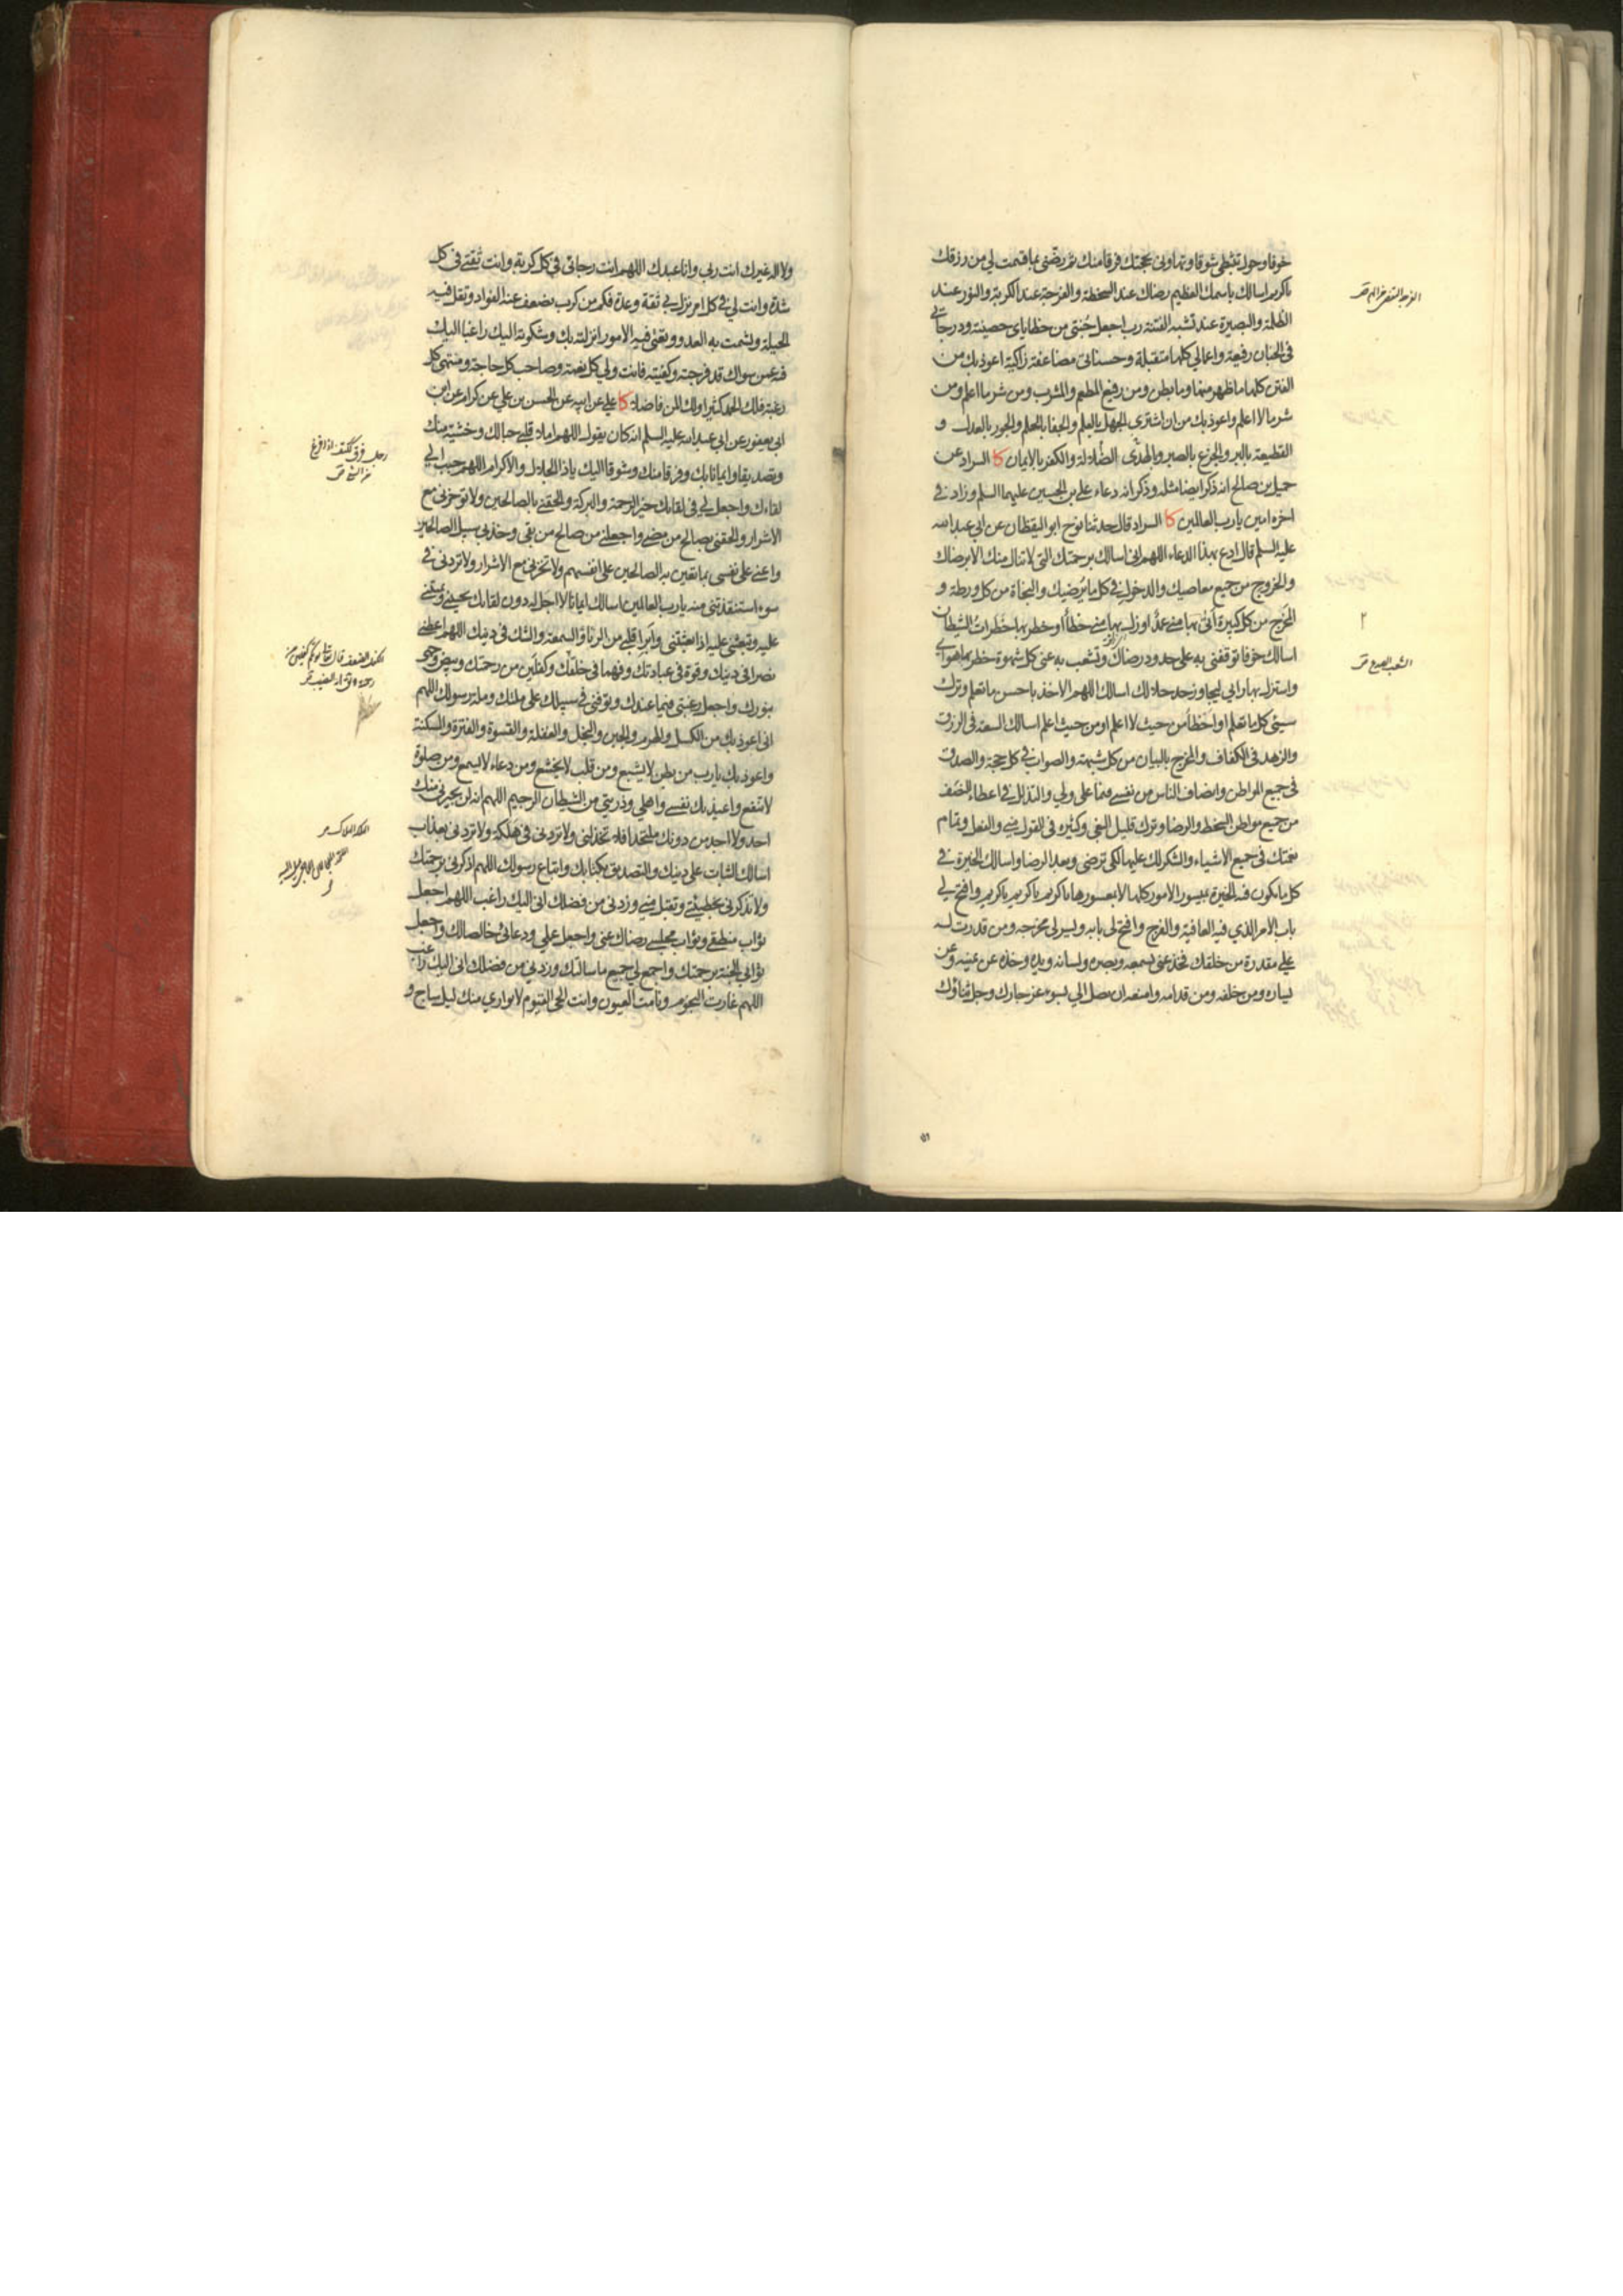 خوفا وحول تثبطي شوقا وتهاوني بحجتك فرقا منك ثم رضني بما قسمت لي من رزقك
يا كريم اسالك باسمك العظيم رضاك عند السخطة والفرجة عند الكربة والنور عند
الظلمة والبصيرة عند تشبه الفتنة رب اجعل جنتي من خطاياى حصينة ودرجاتي
في الجنان رفيعة واعمالي كلها متقبلة وحسناتي مضاعفة زاكية اعوذ بك من
الفتن كلها ما ظهر منها وما بطن ومن رفيع المطعم والمشرب ومن شر ما اعلم ومن
شر ما لا اعلم واعوذ بك من ان اشترى الجهل بالعلم والجفا بالحلم والجور بالعدل و
القطيعة بالبر والجزع بالصبر والهدى بالضلالة والكفر بالايمان كا السراد عن
جميل بن صالح انه ذكر ايضا مثله وذكر انه دعاء علي بن الحسين عليهما السلم وزاد في
اخره امين يا رب العالمين كا السراد قال حدثنا نوح ابو اليقظان عن ابي عبد الله
عليه السلم قال ادع بهذا الدعاء اللهم اني اسالك برحمتك التي لا تنال منك الا برضاك
والخروج من جميع معاصيك والدخول في كل ما يرضيك والنجاة من كل ورطة و
المخرج من كل كبيرة أتى بها مني عمد او زل بها مني خطأ او خطر بها خطرات الشيطان
اسالك خوفا توقفني به على حدود رضاك وتشعب به عني كل شهوة خطر بها هواي
واستزل بها رايي ليجاوز حد حلالك اسالك اللهم الاخذ باحسن ما تعلم وترك
سيئ كل ما تعلم او اخطأ من حيث لا اعلم او من حيث اعلم اسالك السعة في الرزق
والزهد في الكفاف والمخرج بالبيان من كل شبهة والصواب في كل حجة والصدق
في جميع المواطن وانصاف الناس من نفسي فيما علي ولي والتذلل في اعطاء النصف
من جميع مواطن السخط والرضا وترك قليل البغي وكثيره في القول مني والفعل وتمام
نعمتك في جميع الاشياء والشكر لك عليها لكي ترضى وبعد الرضا واسالك الخيرة في
كل ما يكون فيه الخيرة بميسور الامور كلها لا بمعسورها يا كريم يا كريم يا كريم وافتح لي
باب الامر الذي فيه العافية والفرج وافتح لي بابه ويسر لي مخرجه ومن قدرت له
علي مقدرة من خلقك فخذ عني بسمعه وبصره ولسانه ويده وخذه عن يمينه وعن
يساره ومن خلفه ومن قدامه وامنعه ان يصل الي بسوء عز جارك وجل ثناؤك
ولا اله غيرك انت ربي وانا عبدك اللهم انت رجائي في كل كربة وانت ثقتي في كل
شدة وانت لي في كل امر نزل بي ثقة وعدة فكم من كرب يضعف عنه الفواد وتقل فيه
الحيلة ويشمت به العدو وتعيي فيه الامور انزلته بك وشكوته اليك راغبا اليك
فيه عمن سواك قد فرجته وكفيته فانت ولي كل نعمة وصاحب كل حاجة ومنتهى كل
رغبة فلك الحمد كثيرا ولك المن فاضلا كا علي عن ابيه عن الحسن بن علي عن كرام عن ابن
ابي يعفور عن ابي عبد الله عليه السلم انه كان يقول اللهم املا قلبي حبا لك وخشية منك
وتصديقا وايمانا بك وفرقا منك وشوقا اليك يا ذا الجلال والاكرام اللهم حبب الي
لقاءك واجعل لي في لقائك خير الرحمة والبركة والحقني بالصالحين ولا توخرني مع
الاشرار والحقني بصالح من مضى واجعلني من صالح من بقى وخذ بي سبيل الصالحين
واعني على نفسي بما تعين به الصالحين على انفسهم ولا تخزني مع الاشرار ولا تردني في
سوء استنقذتني منه يا رب العالمين اسالك ايمانا لا اجل له دون لقائك تحييني وتميتني
عليه وتبعثني عليه اذا بعثتني وابرأ قلبي من الرياء والسمعة والشك في دينك اللهم اعطني
نصرا في دينك وقوة في عبادتك وفهما في خلقك وكفلين من رحمتك وبيض وجهي
بنورك واجعل رغبتي فيما عندك وتوفني في سبيلك على ملتك وملة رسولك اللهم
اني اعوذ بك من الكسل والهرم والجبن والبخل والغفلة والقسوة والفترة والمسكنة
واعوذ بك يا رب من بطن لا يشبع ومن قلب لا يخشع ومن دعاء لا يسمع ومن صلوة
لا تنفع واعيذ بك نفسي واهلي وذريتي من الشيطان الرجيم اللهم انه لن يجيرني منك
احد ولا اجد من دونك ملتحدا فلا تخذلني ولا تردني في هلكة ولا تردني بعذاب
اسالك الثبات على دينك والتصديق بكتابك واتباع رسولك اللهم اذكرني برحمتك
ولا تذكرني بخطيئتي وتقبل مني وزدني من فضلك اني اليك راغب اللهم اجعل
ثواب منطقي وثواب مجلسي رضاك عني واجعل عملي ودعائي خالصا لك واجعل
ثوابي الجنة برحمتك واجمع لي جميع ما سالتك وزدني من فضلك اني اليك راغب
اللهم غارت النجوم ونامت العيون وانت الحي القيوم لا يواري منك ليل ساج و